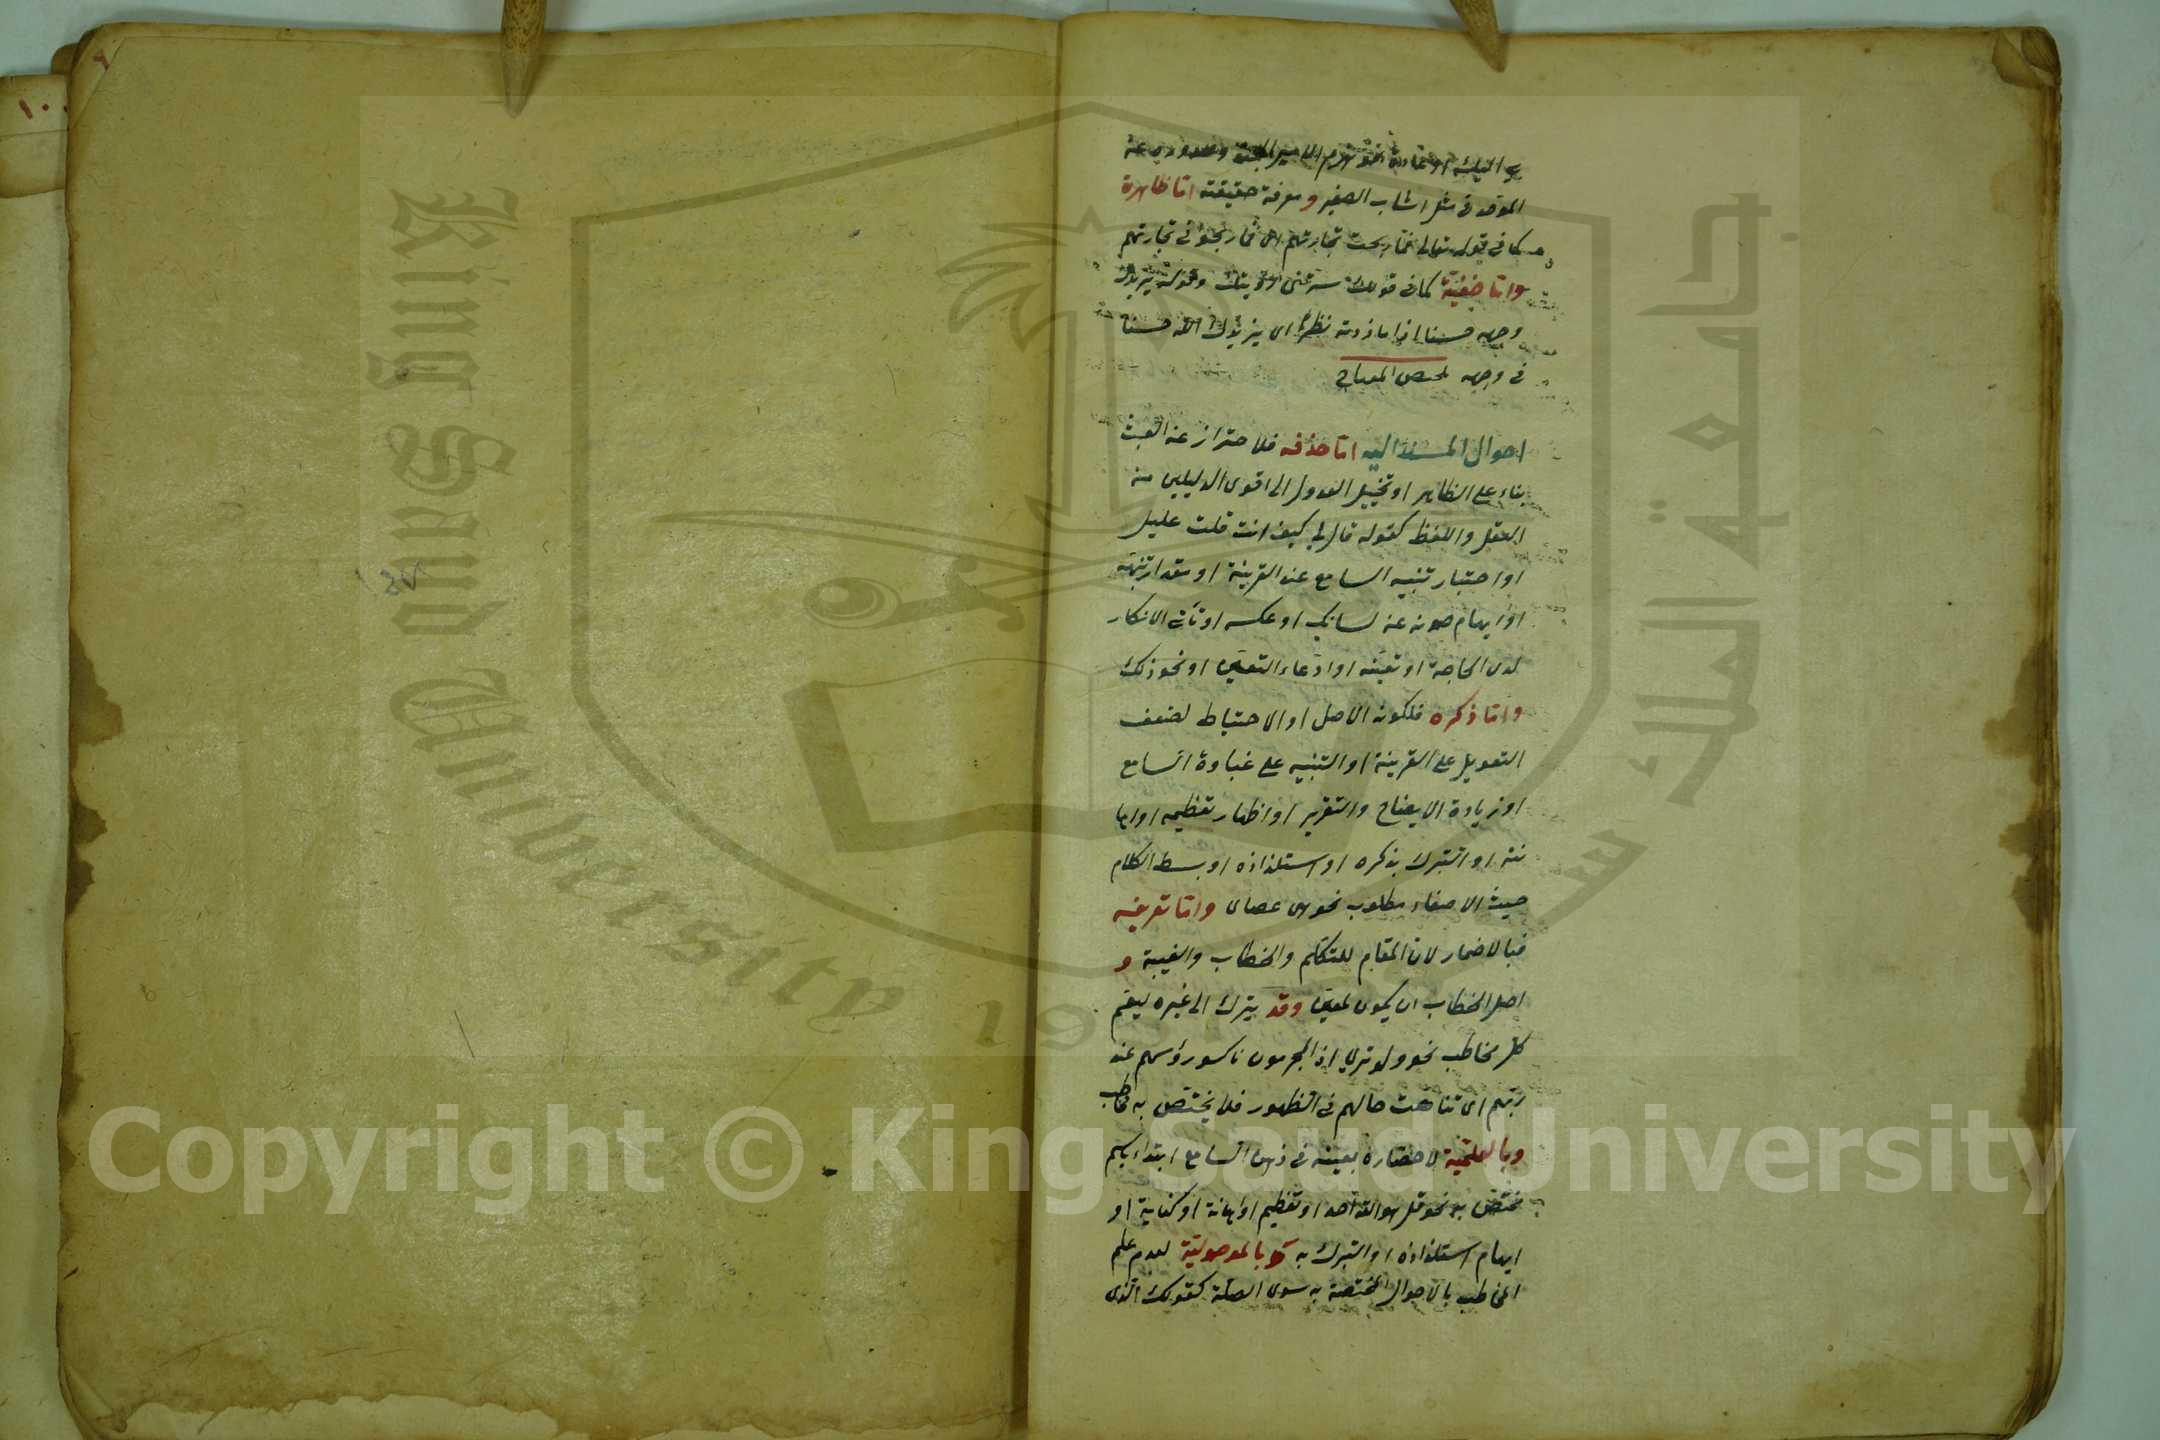 اليك او عادة نحو هزم الامير الجند وصدوره عن
الموحد فى مثل اشاب الصغير ومعرفة حقيقته اما ظاهرة
كما فى قوله تعالى فما ربحت تجارتهم اى فما ربحوا فى تجارتهم
واما خفية كما فى قولك سرتنى رؤيتك وقوله يزيدك
وجهه حسنا اذا ما زدته نظرا اى يزيدك الله حسنا
فى وجهه ملخص المعانى
احوال المسند اليه اما حذفه فلاحتراز عن العبث
بناء على الظاهر او تخييل العدول الى اقوى الدليلين من
العقل واللفظ كقوله قال لى كيف انت قلت عليل
او اختبار تنبه السامع عند القرينة او مقدار تنبهه
او ايهام صونه عن لسانك او عكسه او تأتى الانكار
لدى الحاجة او تعينه او ادعاء التعين او نحو ذلك
واما ذكره فلكونه الاصل او الاحتياط لضعف
التعويل على القرينة او التنبيه على غباوة السامع
او زيادة الايضاح والتقرير او اظهار تعظيمه او اها
نته او التبرك بذكره او استلذاذه او بسط الكلام
حيث الاصغاء مطلوب نحو هى عصاى واما تعريفه
فبالاضمار لان المقام للتكلم والخطاب والغيبة و
اصل الخطاب ان يكون لمعين وقد يترك الى غيره ليعم
كل مخاطب نحو ولو ترى اذ المجرمون ناكسو رؤسهم عند
ربهم اى تناهت حالهم فى الظهور فلا يختص به مخاطب
وبالعلمية لاحضاره بعينه فى ذهن السامع ابتداء باسم
مختص به نحو قل هو الله احد او تعظيم او اهانة او كناية او
ايهام استلذاذه او التبرك به وبالموصولية لعدم علم
المخاطب بالاحوال المختصة به سوى الصلة كقولك الذى
٩
١٠٠
King Saud University
جامعة الملك سعود
19
Copyright © King Saud University